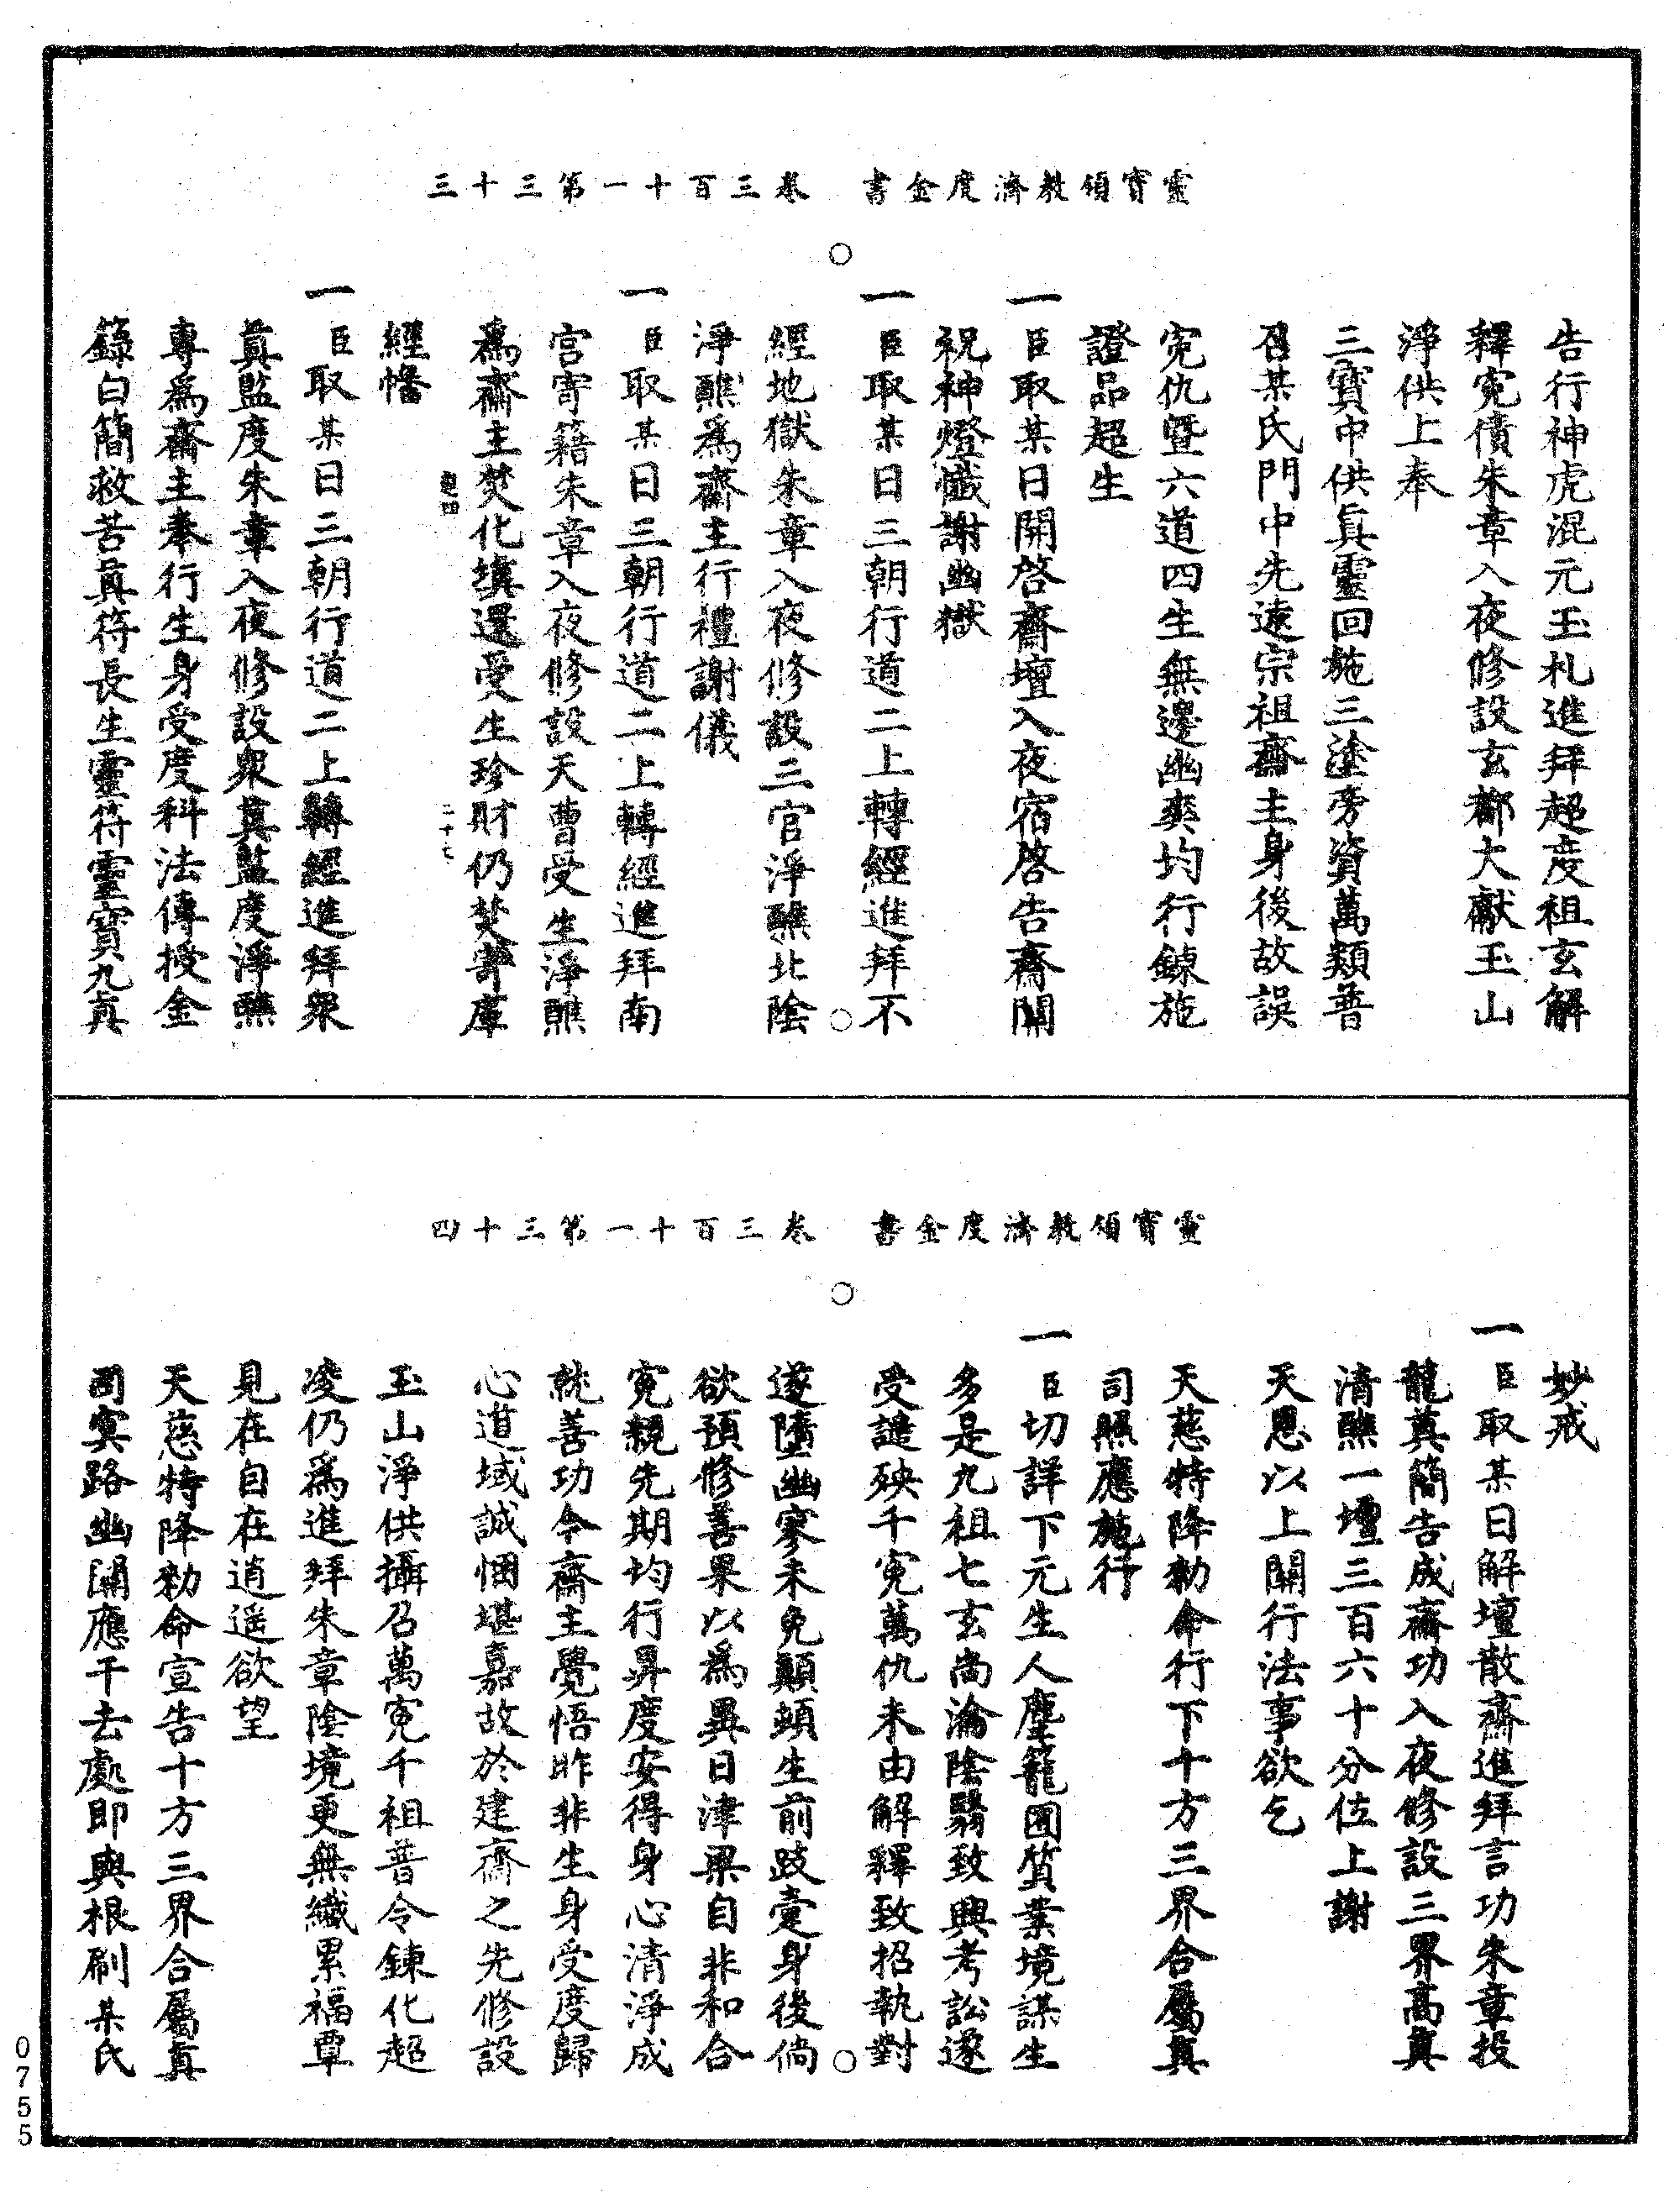 靈寶領教濟度金書　卷三百十一第三十三
告行神虎混元玉札進拜超度祖玄解
釋寃債朱章入夜修設玄都大獻玉山
淨供上奉
三寶中供眞靈回施三塗旁資萬類普
召某氏門中先遠宗祖齋主身後故誤
寃仇曁六道四生無邊幽爽均行鍊施
證品超生
一臣取某日開啓齋壇入夜宿啓告齋關
祝神燈懺謝幽獄
一臣取某日三朝行道二上轉經進拜不
經地獄朱章入夜修設三官淨醮北陰
淨醮爲齋主行禮謝儀
一臣取某日三朝行道二上轉經進拜南
宫寄籍朱章入夜修設天曹受生淨醮
爲齋主焚化塡還受生珍財仍焚寄庫
經幡
二十七
一臣取某日三朝行道二上轉經進拜衆
眞監度朱章入夜修設衆眞監度淨醮
專爲齋主奉行生身受度科法傳授金
籙白簡救苦眞符長生靈符靈寶九眞
靈寶領教濟度金書　卷三百十一第三十四
妙戒
一臣取某日解壇散齋進拜言功朱章投
龍奠簡告成齋功入夜修設三界高眞
清醮一壇三百六十分位上謝
天恩以上關行法事欲乞
天慈特降勑命行下十方三界合屬眞
司照應施行
一臣切詳下元生人塵籠囿質業境謀生
多是九祖七玄尚淪陰翳致興考訟遂
受譴殃千寃萬仇未由解釋致招執對
遂墮幽寥未免顛頭生前跂疐身後倘
欲預修善果以爲異日津梁自非和合
寃親先期均行昇度安得身心清淨成
就善功今齋主覺悟昨非生身受度歸
心道域誠悃堪嘉故於建齋之先修設
玉山淨供攝召萬寃千祖普令鍊化超
凌仍爲進拜朱章陰境更無纖累福覃
見在自在逍遥欲望
天慈特降勑命宣告十方三界合屬眞
司冥路幽關應干去處即與根刷某氏
0755